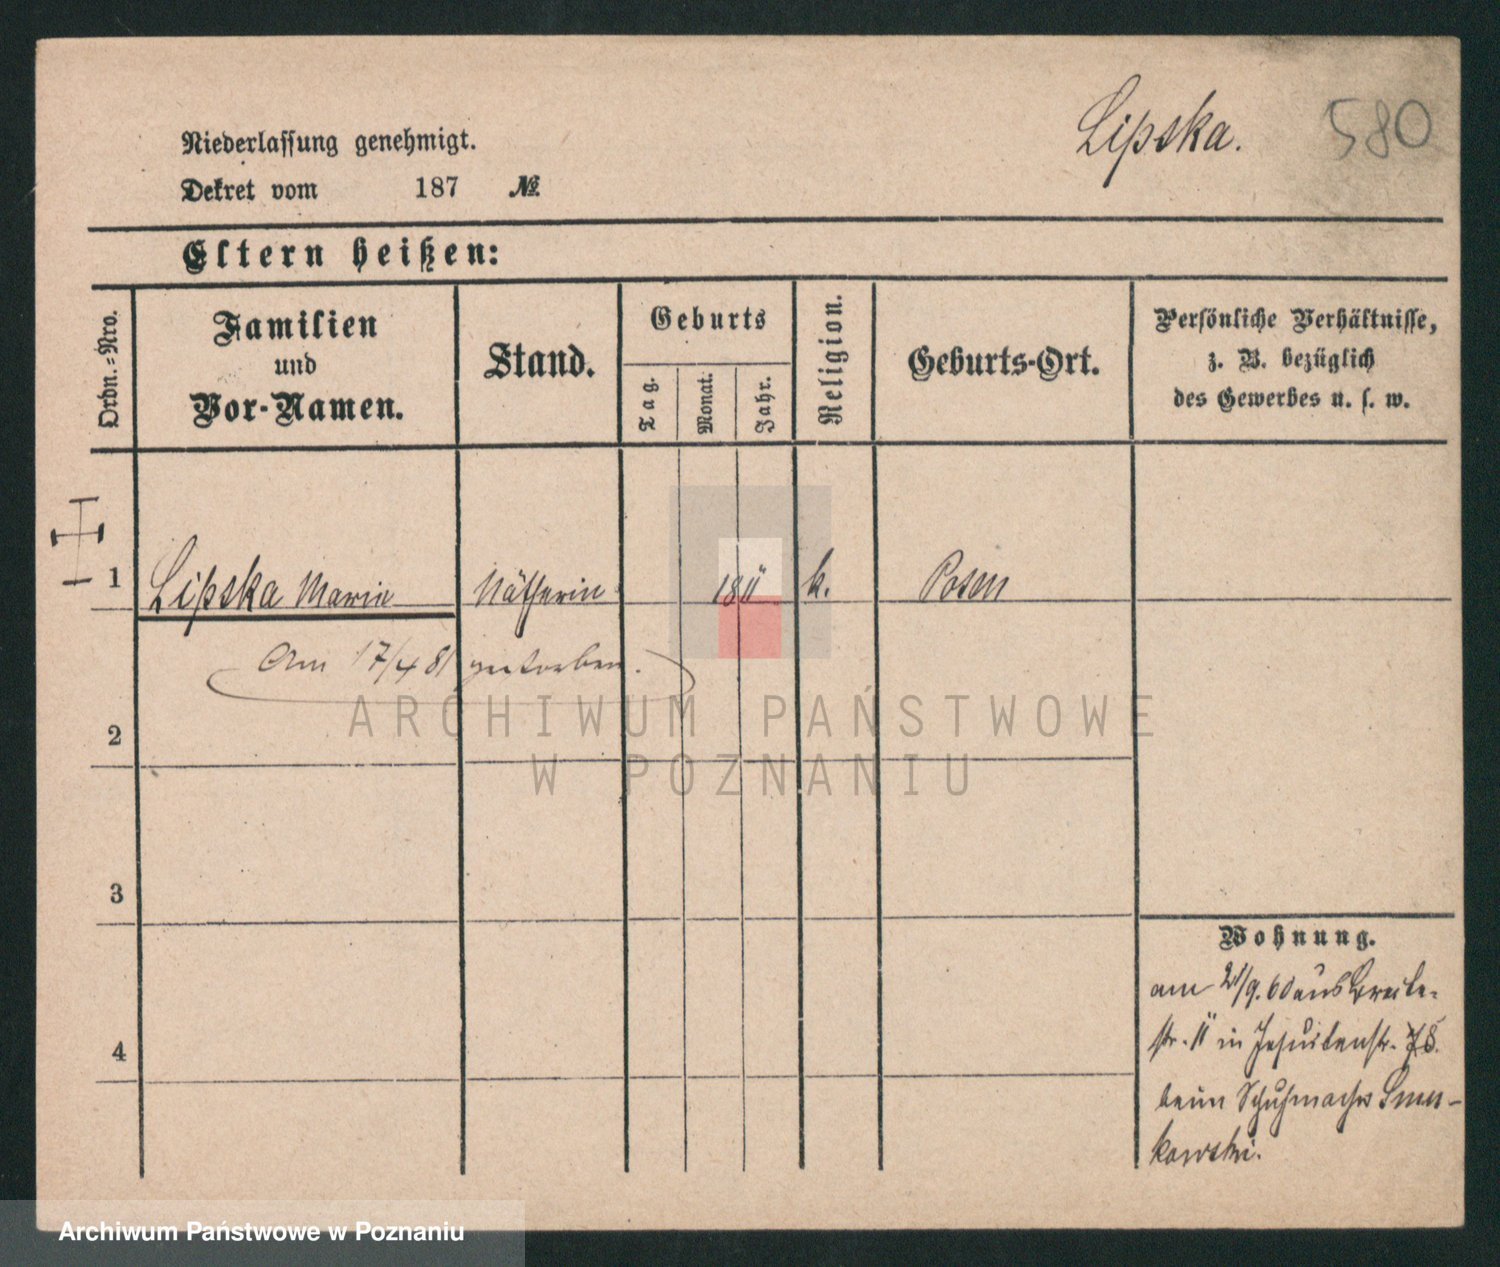 Lipska. 580
Niederlassung genehmigt.
Dekret vom 187 №
Eltern heißen:
Ordn.=Nro.
Familien
und
Vor-Namen.
Stand.
Geburts
Tag.
Monat.
Jahr.
Religion.
Geburts-Ort.
Persönliche Verhältnisse,
z. B. bezüglich
des Gewerbes u. s. w.
1 Lipska Marie Nätherin 1811 k. Posen
Am 17/4 81 gestorben.
2
3
4
Wohnung.
am 21/9. 60 aus Breite-
str. 11 in Jesuitenstr.
beim Schuhmacher
kowski.
ARCHIWUM PAŃSTWOWE
W POZNANIU
Archiwum Państwowe w Poznaniu